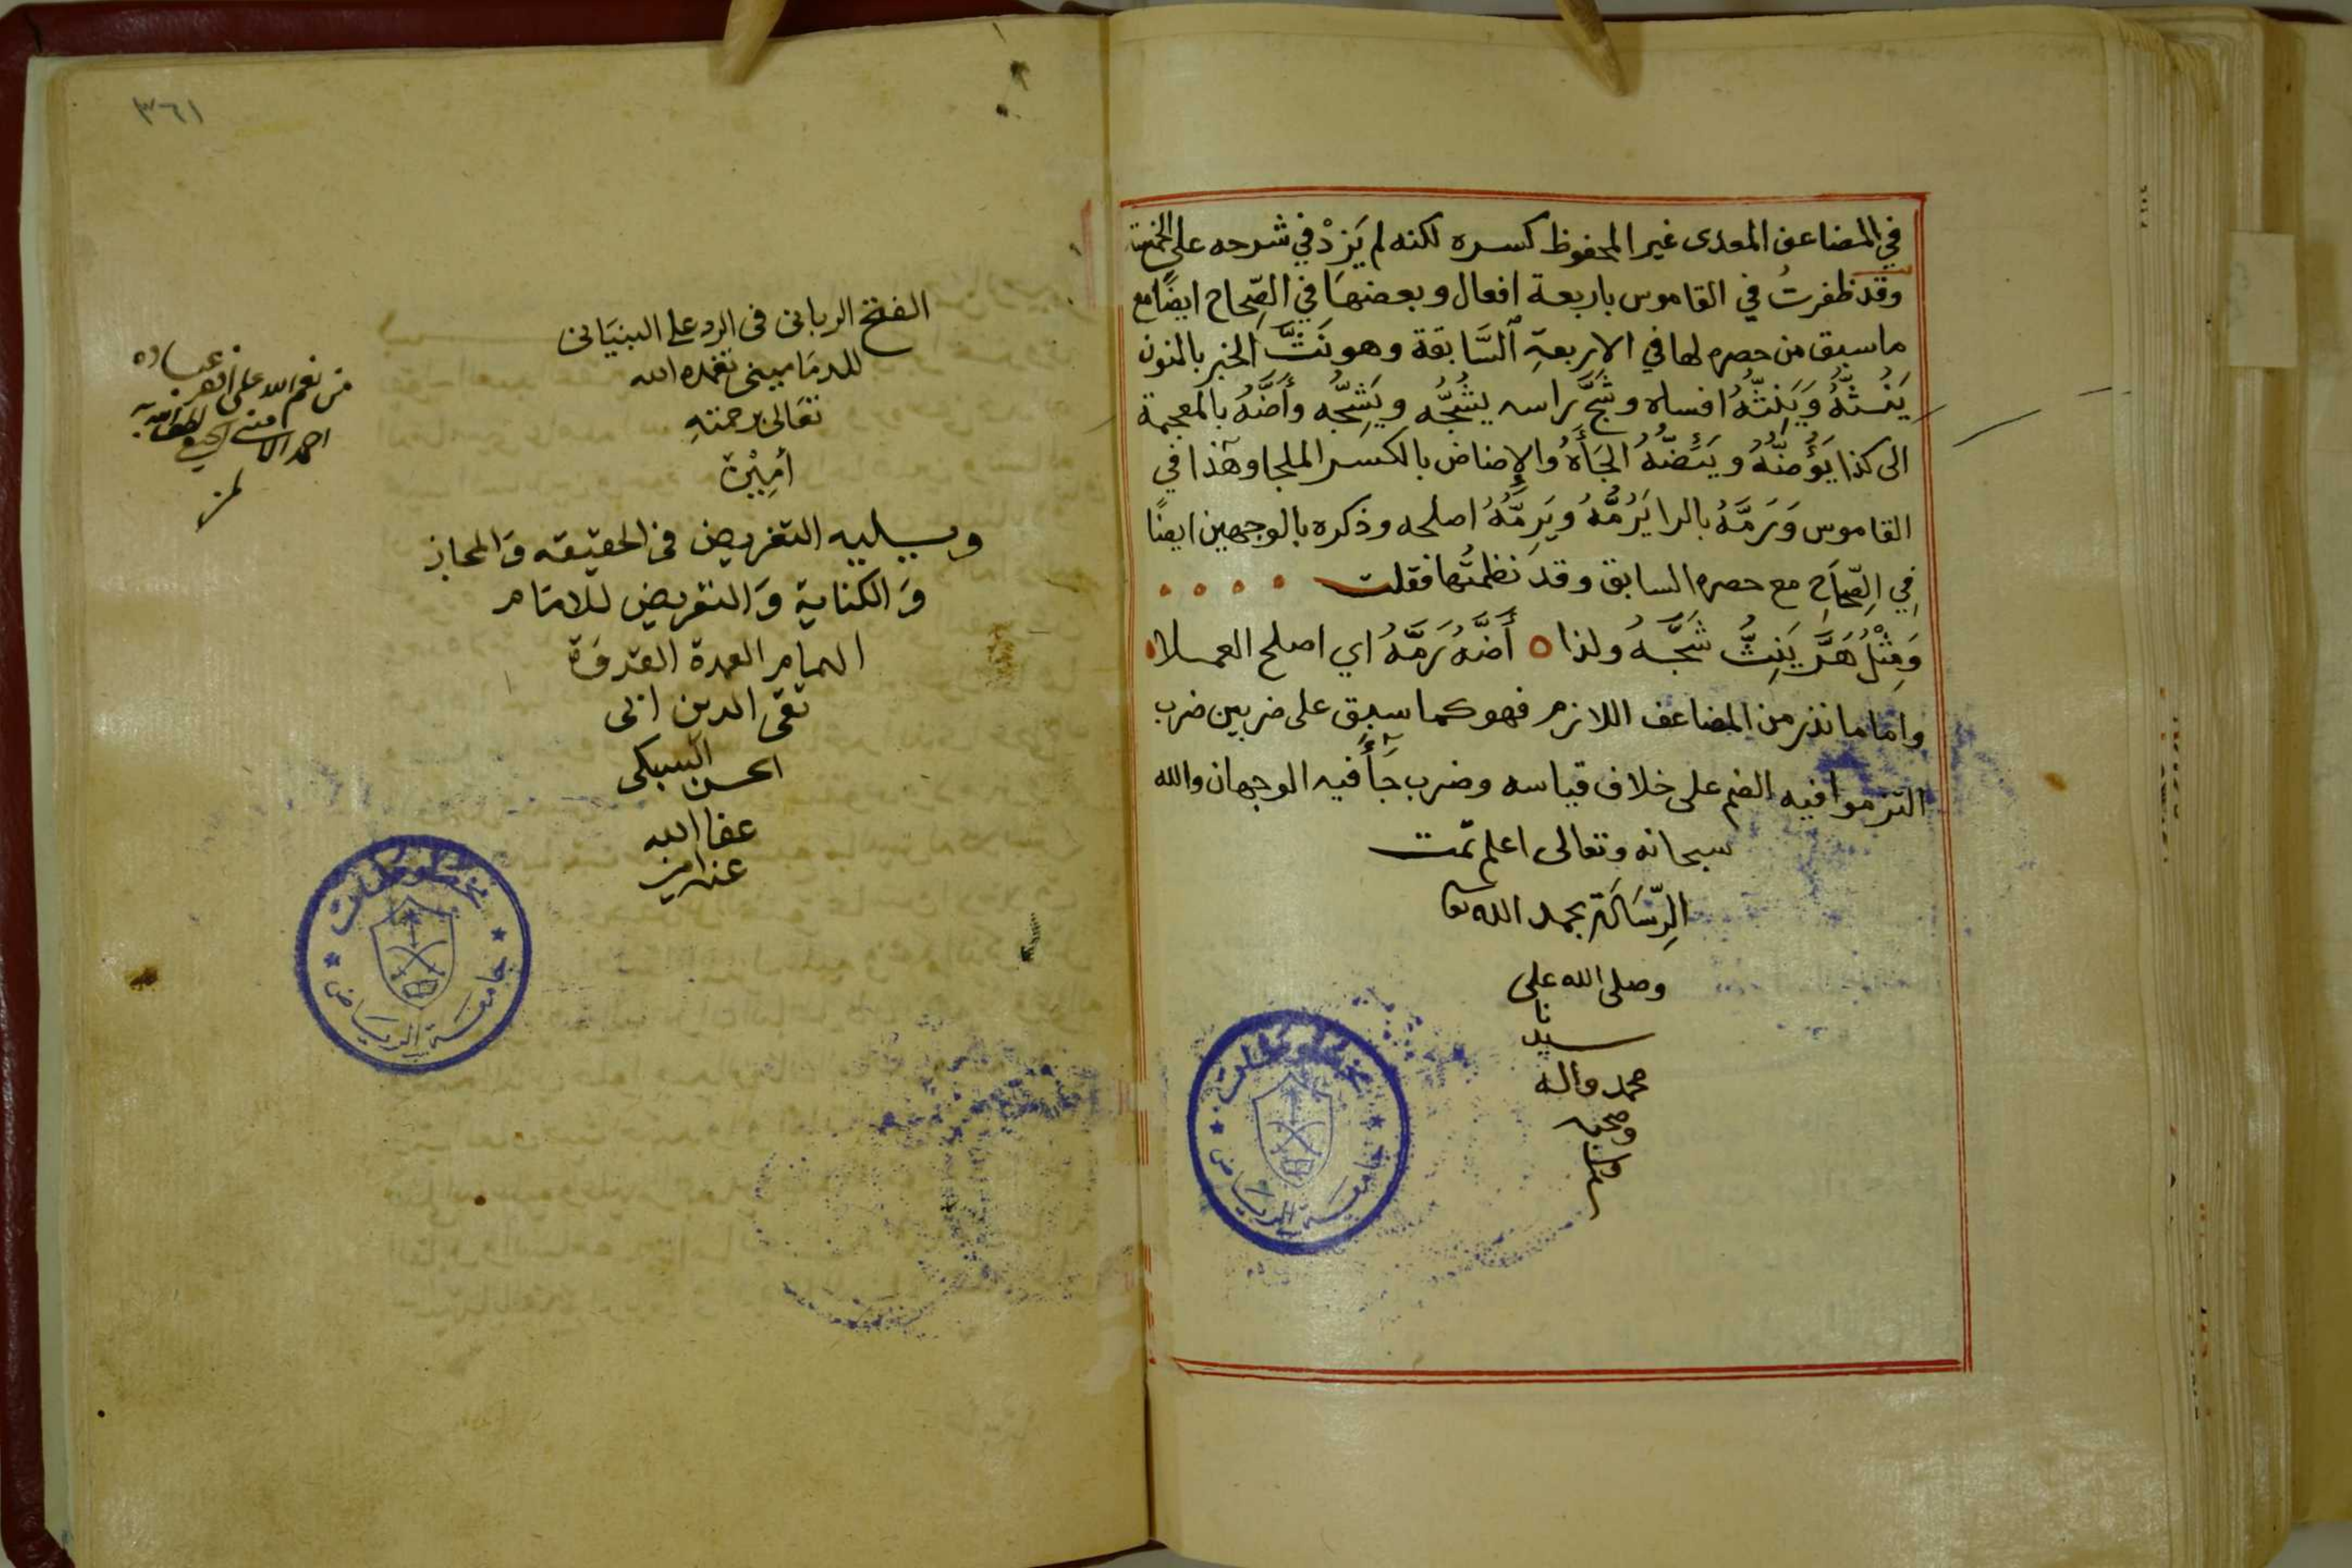 في المضاعف المعدى غير المحفوظ كسره لكنه لم يَزِدْ في شرحه على الخمسة
وقد ظفرتُ في القاموس باربعة افعال وبعضهَا في الصِّحاح ايضًا مع
ما سبق من حصره لها في الاربعةِ السَّابقة وهو نَثَّ الخبر بالنون
يَنُثُّهُ وَيَنِثُّهُ افساه وشَجَّ راسه يَشُجُّه ويَشِجُّه وأَضَّهُ بالمعجمة
الى كذا يَؤُضُّهُ ويَئِضُّهُ الجَأَهُ والإِضاض بالكسر الملجا وهذا في
القاموس وَرَمَّهُ بالرا يَرُمُّهُ ويَرِمُّهُ اصلحه وذكره بالوجهين ايضًا
فِي الصِّحَاحِ مع حصره السابق وقد نظمتُها فقلت
وَمِثْلُ هَرَّ يَنِثُّ شَجَّهُ ولذا أَضَّهُ رَمَّهُ اي اصلح العملا
واما ما نذر من المضاعف اللازم فهو كما سبق على ضربين ضرب
التزموا فيه الضم على خلاف قياسه وضرب جَأَ فيه الوجهان والله
سبحانه وتعالى اعلم تمّت
الرِّسَالَة بحمد الله تعا
وصلى الله على
سيدنا
محمد واله
وصحبه
وسلم
مخطوطات
جامعة الرياض
٣٦١
الفتح الربانى فى الرد على البنيَانى
للدمَامينى تغمده الله
تعَالى برحمتهِ
أمِيْن
ويليه التغريض فى الحقيقه وَالمجاز
وَالكناية وَالتعريض للامَام
الهمام العمدة القدوَة
تقى الدين ابى
الحسن السبكى
عفا الله
عنه امين
من نعم الله على افقر عباده
احمد
مخطوطات
جامعة الرياض